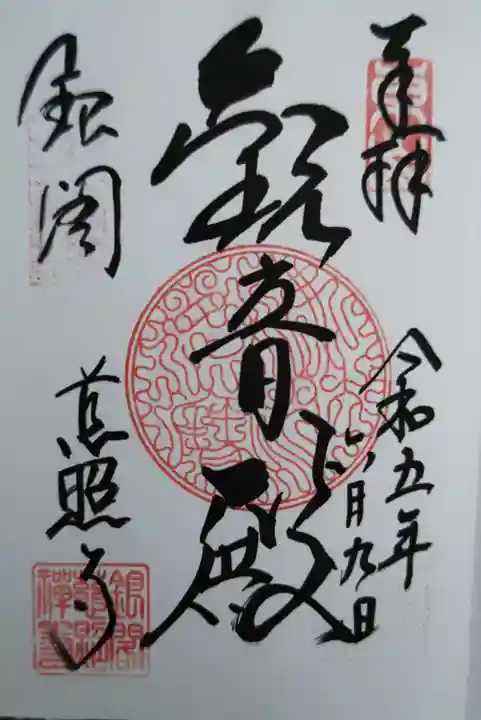 奉拝
令和五年
六月九日
觀音殿
銀閣
慈照寺